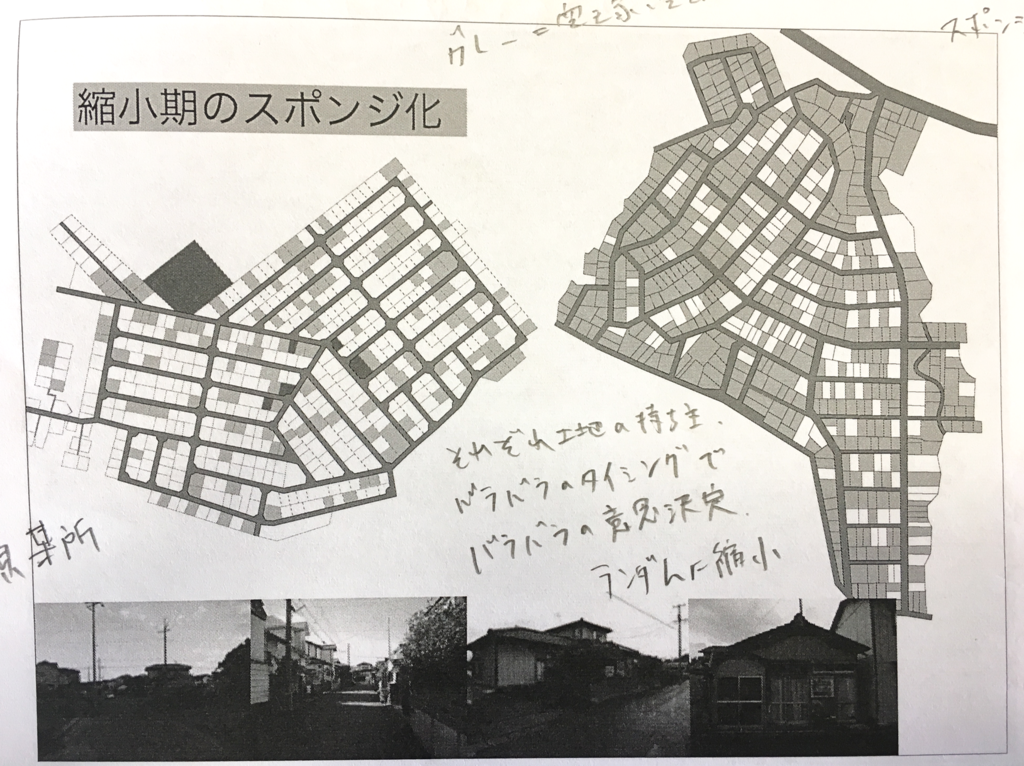 グレー=空き家
スポン
縮小期のスポンジ化
それぞれ土地の持ち主、
バラバラのタイミングで
バラバラの意思決定、
ランダムに縮小